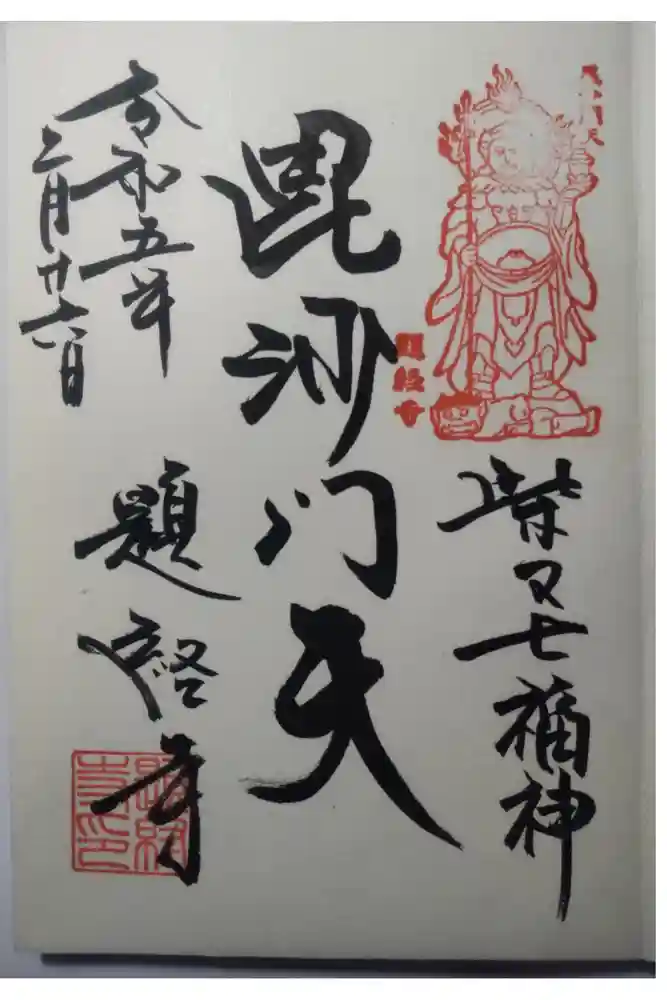 柴又七福神
毘沙門天
令和五年
二月廿六日
題経寺
毘沙門天
題経寺